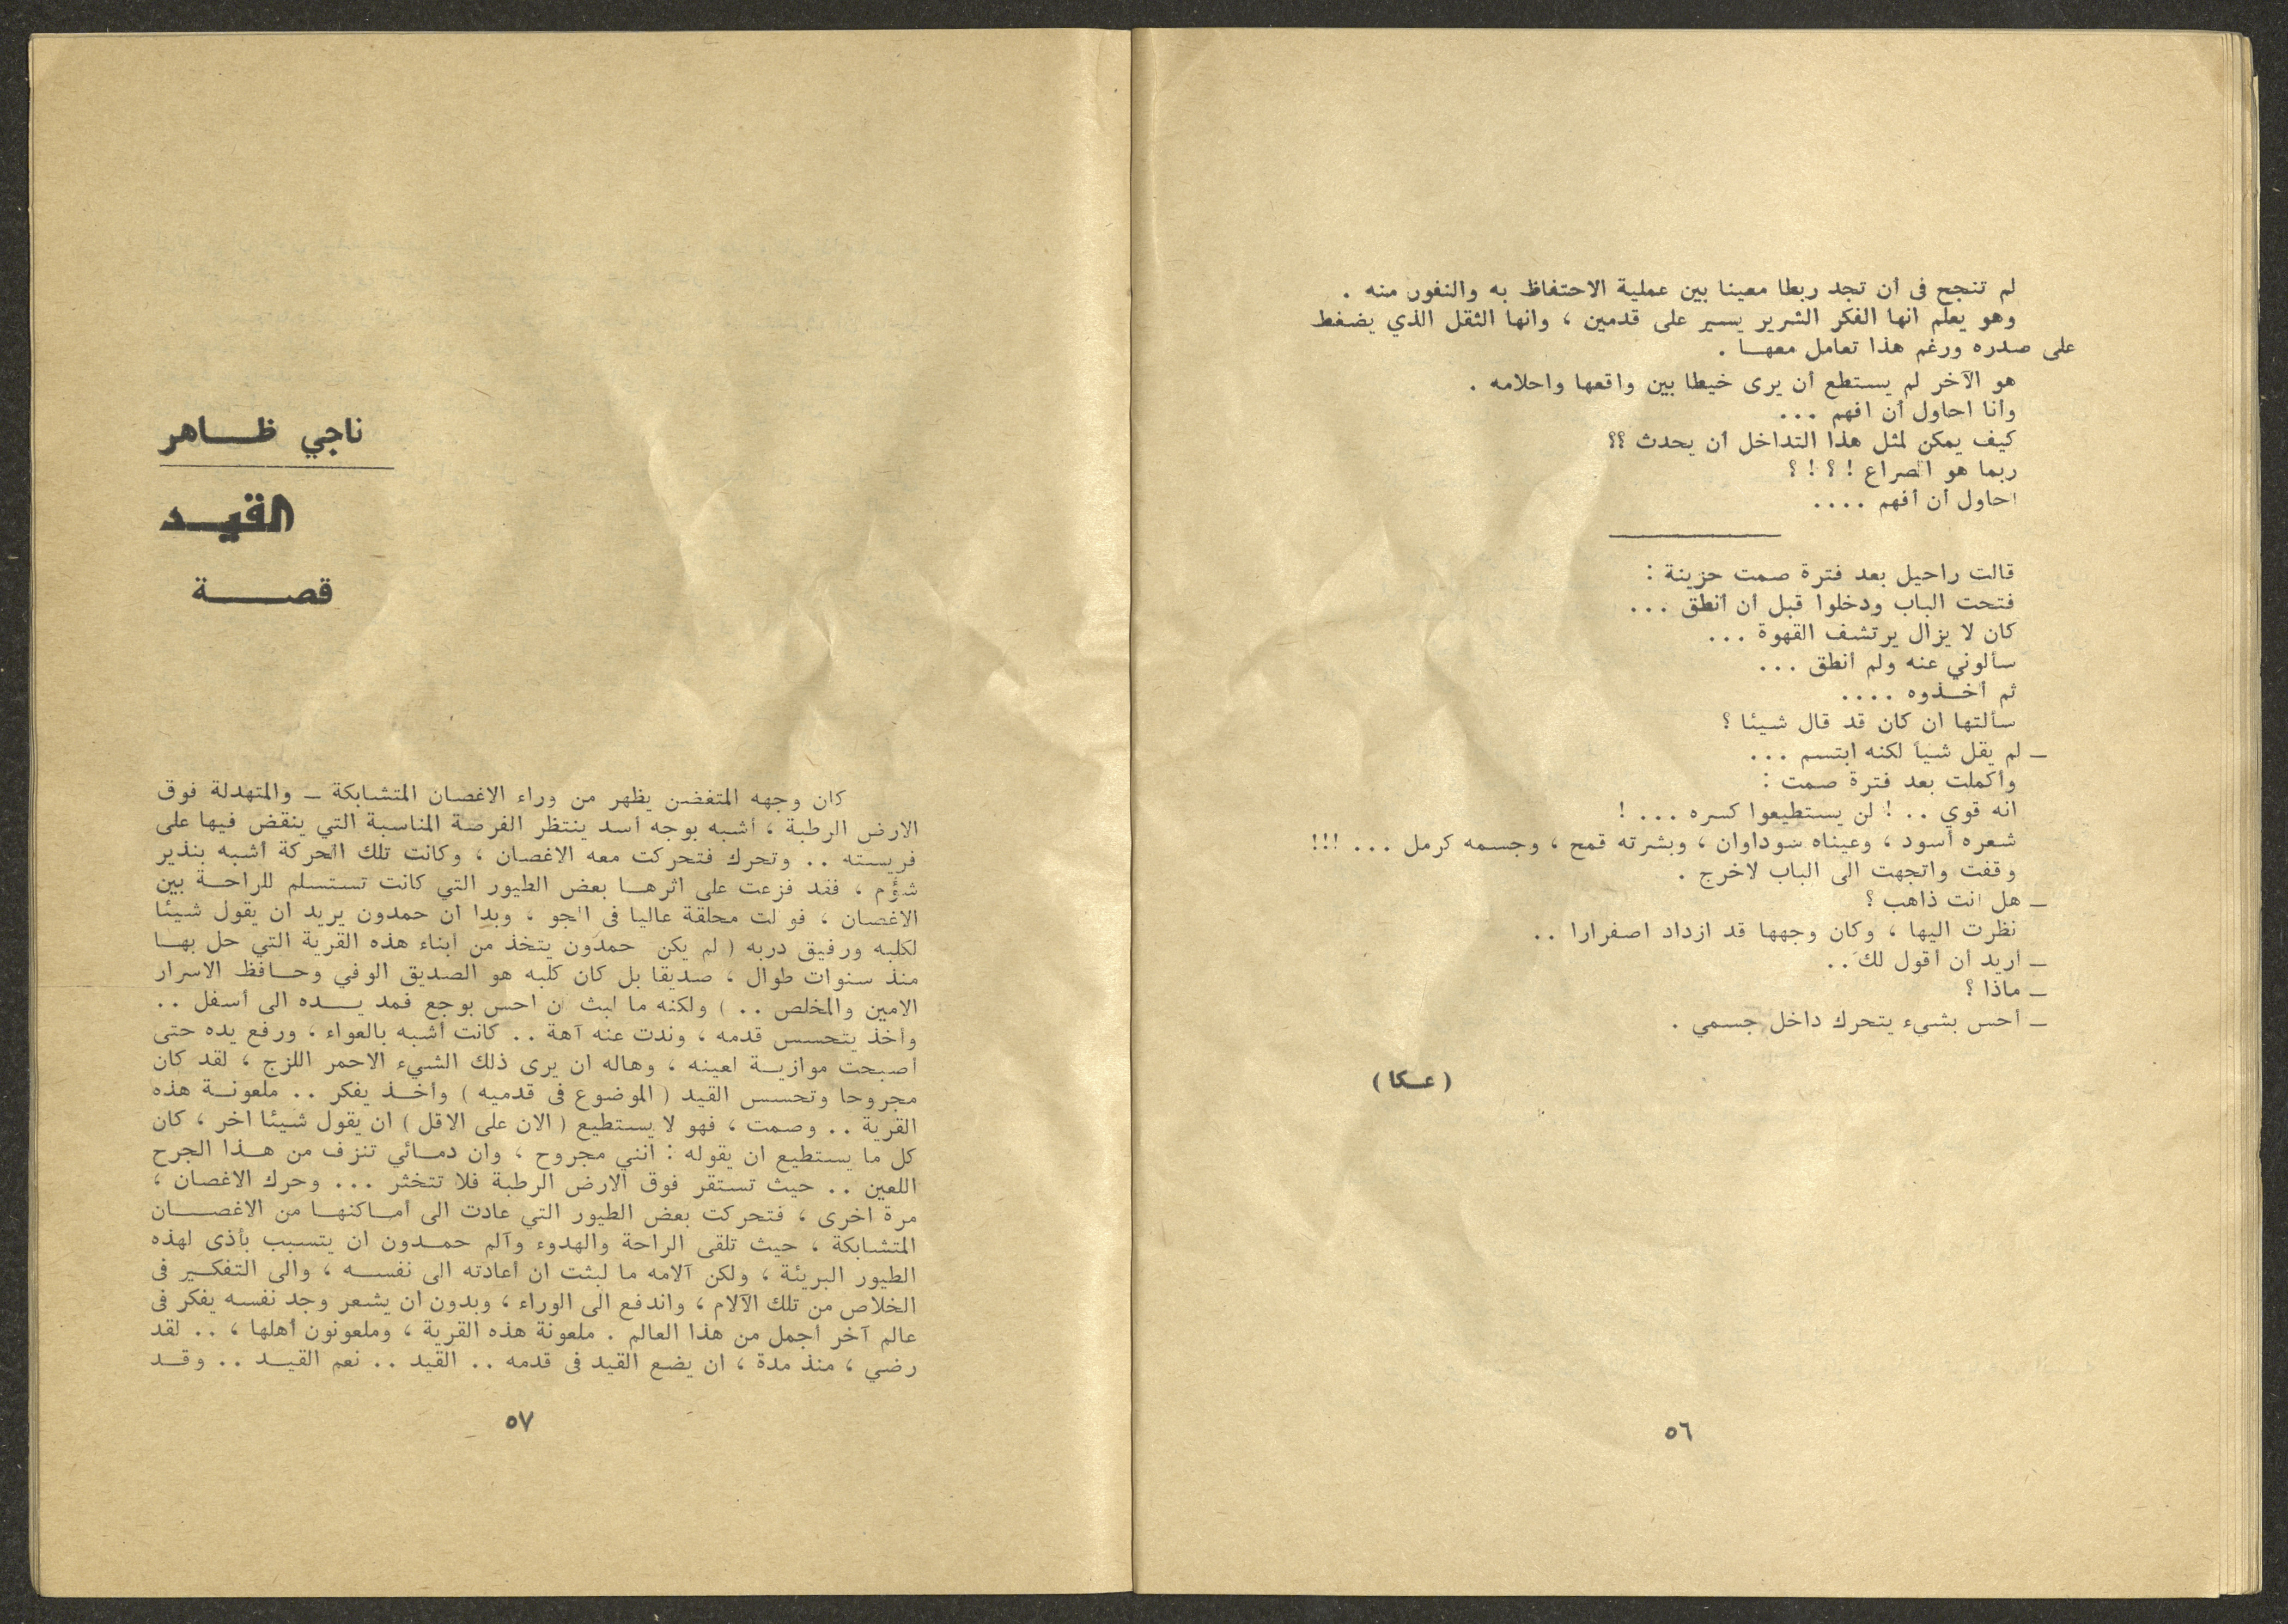 لم تنجح فى أن تجد ربطا معينا بين عملية الاحتفاظ به والنفور منه .
وهو يعلم انها الفكر الشرير يسير على قدمين ، وانها الثقل الذي يضغط
على صدره ورغم هذا تعامل معهـا .
هو الآخر لم يستطع أن يرى خيطا بين واقعها واحلامه .
وأنا احاول أن افهم ...
كيف يمكن لمثل هذا التداخل أن يحدث ؟؟
ربما هو الصراع ! ؟ ! ؟
احاول أن أفهم ....
قالت راحيل بعد فترة صمت حزينة :
فتحت الباب ودخلوا قبل أن أنطق ...
كان لا يزال يرتشف القهوة ...
سألوني عنه ولم أنطق ...
ثم أخـذوه ....
سألتها ان كان قد قال شيئا ؟
ـ لم يقل شيأ لكنه ابتسم ...
وأكملت بعد فترة صمت :
انه قوي .. ! لن يستطيعوا كسره ... !
شعره أسود ، وعيناه سوداوان ، وبشرته قمح ، وجسمه كرمل ... !!!
وقفت واتجهت الى الباب لاخرج .
ـ هل انت ذاهب ؟
نظرت اليها ، وكان وجهها قد ازداد اصفرارا ..
ـ أريد أن أقول لك ..
ـ ماذا ؟
ـ أحس بشيء يتحرك داخل جسمي .
( عـكا )
٥٦
ناجي ظـــاهر
القيــد
قصــــة
كان وجهه المتغضن يظهر من وراء الاغصان المتشابكة ـ والمتهدلة فوق
الارض الرطبة ، أشبه بوجه أسد ينتظر الفرصة المناسبة التي ينقض فيها على
فريسته .. وتحرك فتحركت معه الاغصان ، وكانت تلك الحركة أشبه بنذير
شؤم ، فقد فزعت على اثرهـا بعض الطيور التي كانت تستسلم للراحـة بين
الاغصان ، فولت محلقة عاليا فى الجو ، وبدا ان حمدون يريد ان يقول شيئا
لكلبه ورفيق دربه ( لم يكن حمدون يتخذ من أبناء هذه القرية التي حل بهـا
منذ سنوات طوال ، صديقا بل كان كلبه هو الصديق الوفي وحـافظ الاسرار
الامين والمخلص .. ) ولكنه ما لبث ان احس بوجع فمد يـــده الى أسفل ..
وأخذ يتحسس قدمه ، وندت عنه آهة .. كانت أشبه بالعواء ، ورفع يده حتى
أصبحت موازيـة لعينه ، وهاله ان يرى ذلك الشيء الاحمر اللزج ، لقد كان
مجروحا وتحسس القيد ( الموضوع فى قدميه ) وأخـذ يفكر .. ملعونـة هذه
القرية .. وصمت ، فهو لا يستطيع ( الان على الاقل ) ان يقول شيئا اخر ، كان
كل ما يستطيع ان يقوله : انني مجروح ، وان دمـائي تنزف من هـذا الجرح
اللعين .. حيث تستقر فوق الارض الرطبة فلا تتخثر ... وحرك الاغصان ،
مرة اخرى ، فتحركت بعض الطيور التي عادت الى أمـاكنهـا من الاغصـــان
المتشابكة ، حيث تلقى الراحة والهدوء وآلم حمـدون ان يتسبب بأذى لهذه
الطيور البريئة ، ولكن آلامه ما لبثت ان أعادته الى نفسـه ، والى التفكـير فى
الخلاص من تلك الآلام ، واندفع الى الوراء ، وبدون ان يشعر وجد نفسه يفكر فى
عالم آخر أجمل من هذا العالم . ملعونة هذه القرية ، وملعونون أهلها ، .. لقد
رضي ، منذ مدة ، ان يضع القيد فى قدمه .. القيد .. نعم القيـد .. وقـد
٥٧